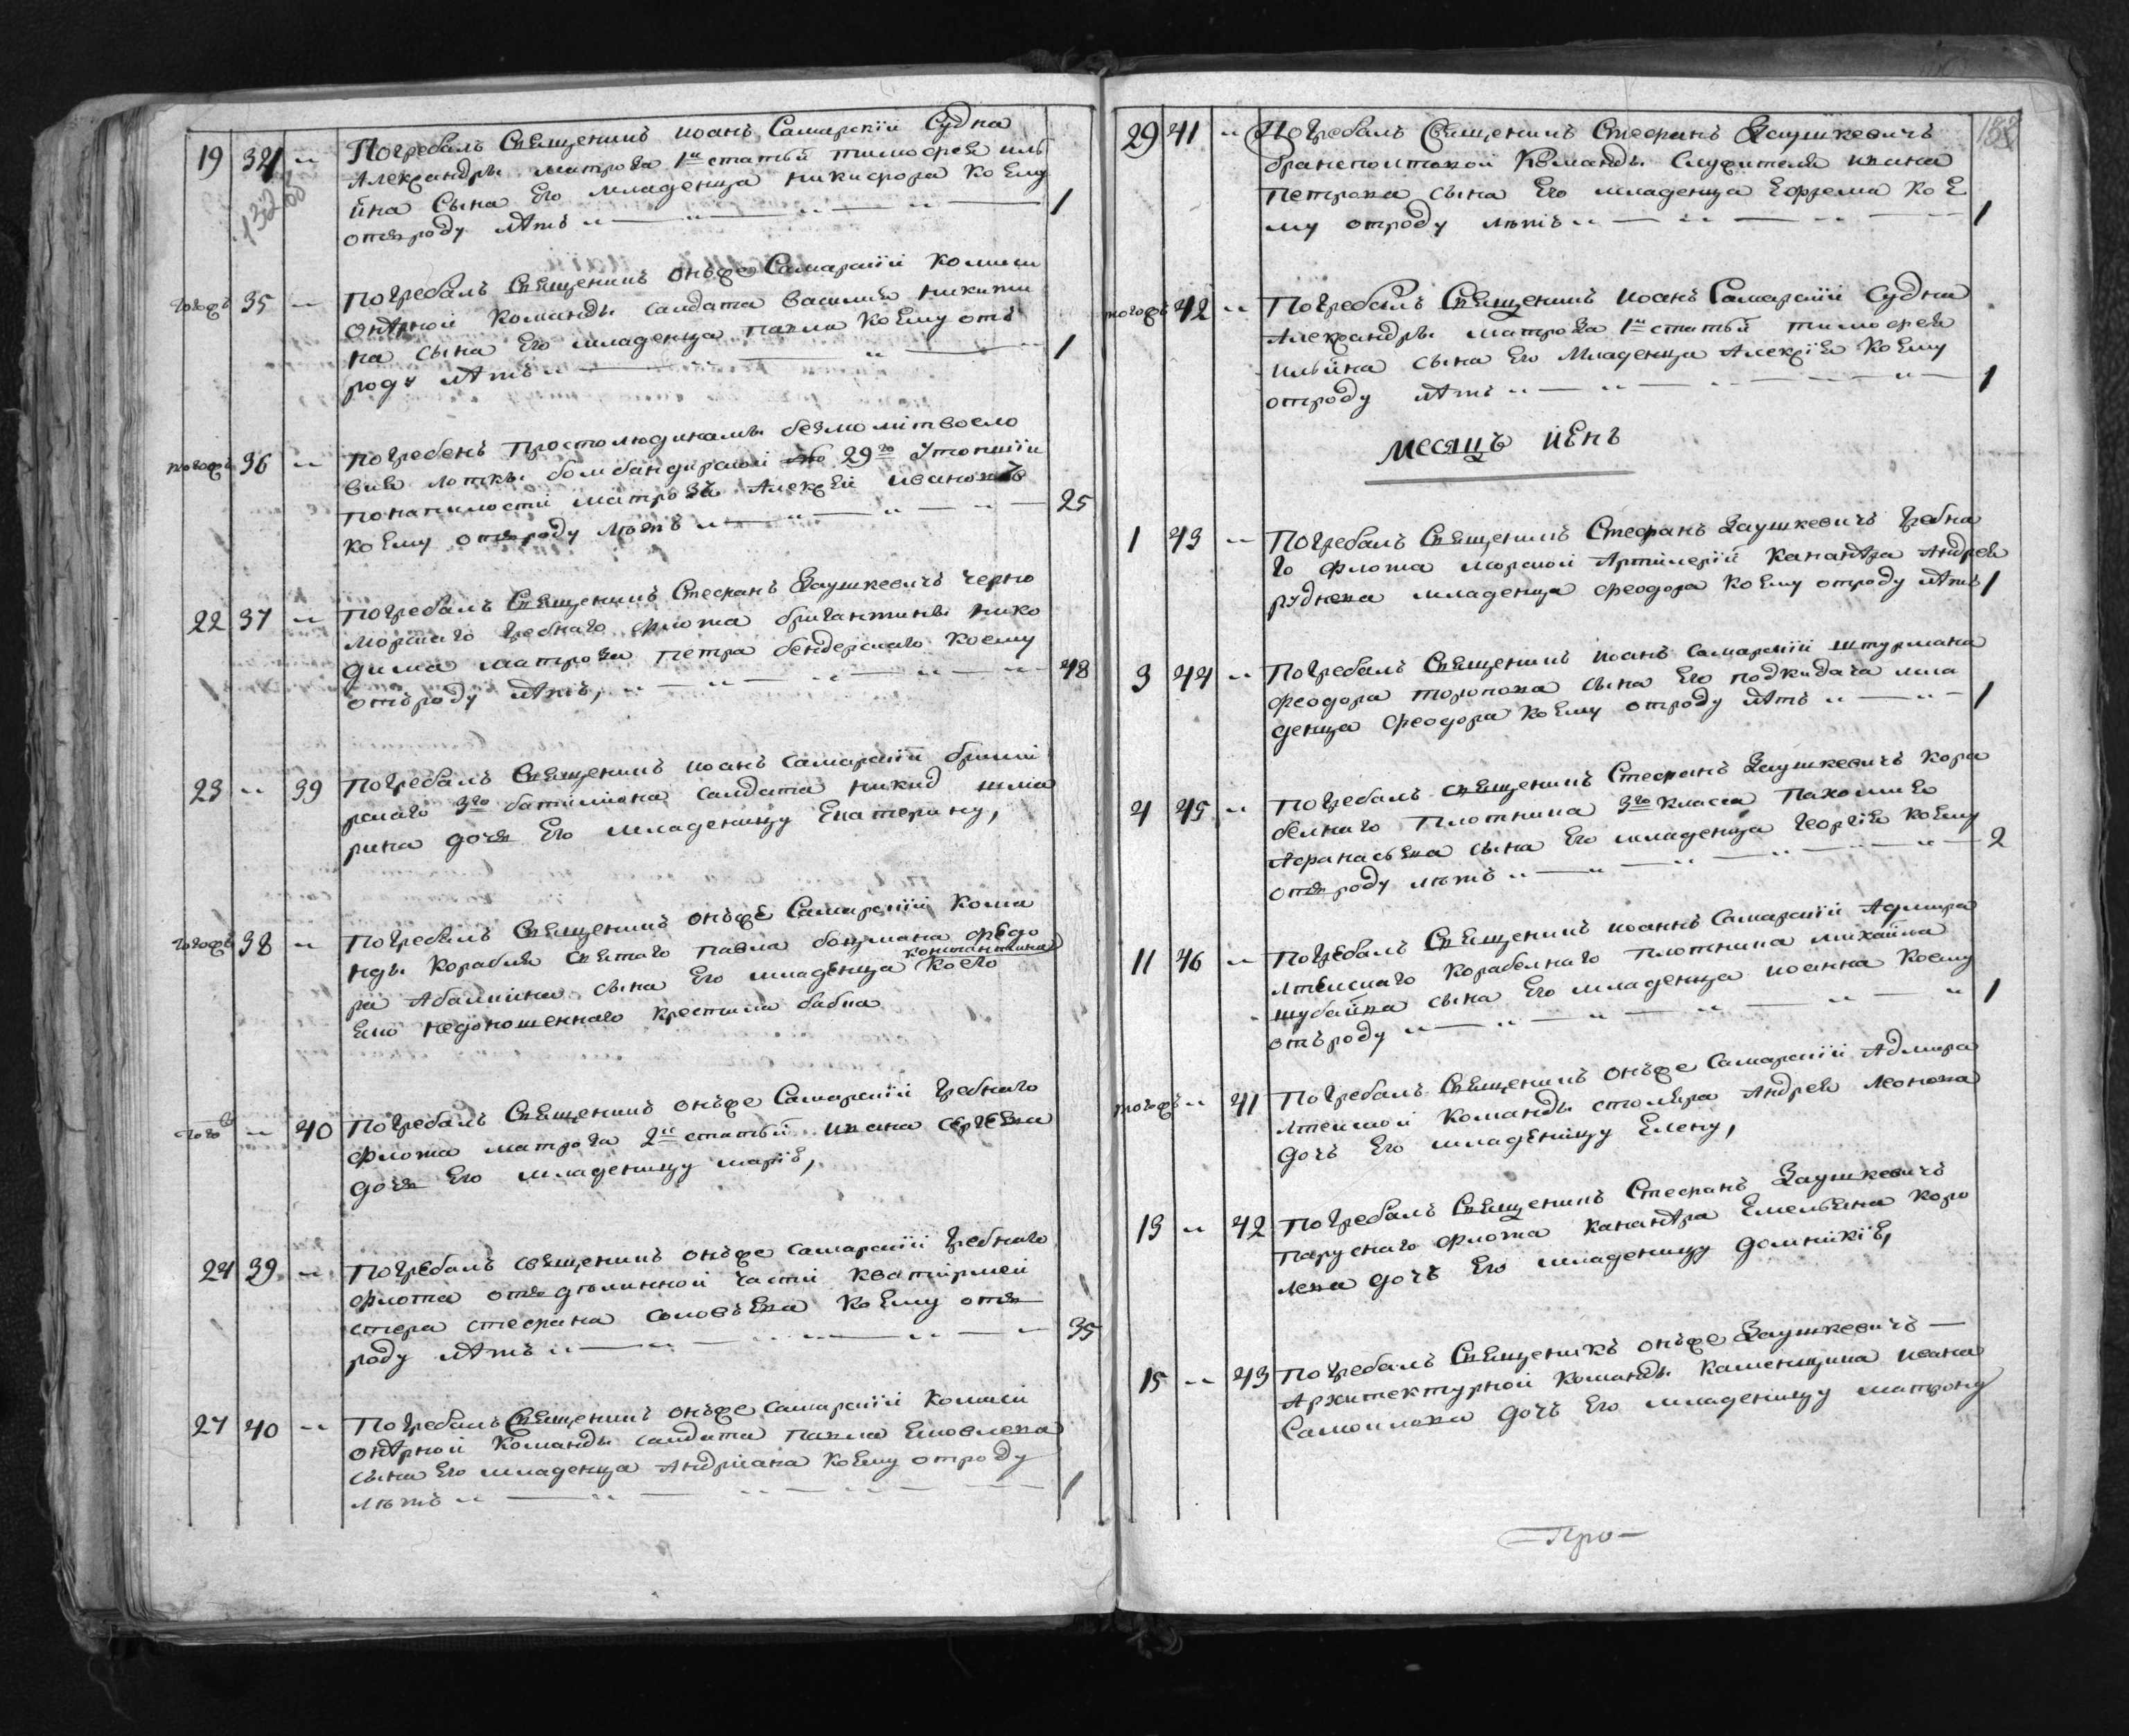 19 34 „ Погребалъ Священникъ иоанъ Самарскїй Судна
132
Александры матроза 1й статьи тимофея иль
ина Сына Его младенца никифора коему
отъроду лѣтъ „ — „ — „ — 1
тогожъ 35 „ Погребалъ Священникъ онъже Самарскїй комиси
онерной команды салдата василия никити
на сына Его младенца павла коему отъ
роду лѣтъ „ — „ — 1
тогожъ 36 „ погребенъ простолюдинамы безмолитвосло
вия лотки бомбандирской 29го утопшїй
понапилости матрозъ Алексей ивановъ
коему отъроду лѣтъ „ — „ — „ — 25
22 37 „ погребалъ Священникъ Стефанъ Заушкевичъ черно
морскаго гребнаго флота бригантины нико
дима матроза петра бендерскаго коему
отъроду лѣтъ, „ — „ — „ — „ — 48
23 „ 39 Погребалъ Священникъ иоанъ самарскїй
рскаго 3го баталиона салдата
рина дочь Его младеницу Екатерину,
тогожъ 38 „ Погребалъ Священникъ онъже Самарскїй кома
нды корабля святаго павла боцмана федо
константина
ра Абакшина сына Его младенца коего
недоношеннаго крестила бабка
того „ 40 Погребалъ Священникъ онъже Самарскїй гребнаго
флота матроза 2й статьи ивана сергеева
дочь Его младеницу марїю,
24 39 „ Погребалъ священникъ онъже самарскїй гребнаго
флота отъ части квотирмей
стера стефана соловъева коему отъ
роду лѣтъ „ — „ — „ — „ — 35
27 40 „ Погребалъ Священникъ онъже самарскїй комиси
онерной команды салдата павла
сына Его младенца Андриана коему отроду
лѣтъ „ — „ — „ — „ — 1
29 41 „ Погребалъ Священникъ Стефанъ Заушкевичъ
транспортской команды служителя ивана
петрова сына Его младенца Ефрема коЕ
му отроду лѣтъ „ — „ — „ — 1
тогожъ 42 „ Погребалъ Священникъ иоанъ Самарскїй судна
Александры матроза 1й статьи тимофея
ильина сына Его Младенца Алексїя коему
отроду лѣтъ „ — „ — „ — 1
месяцъ
1 43 „ Погребалъ Священникъ Стефанъ Заушкевичъ гребна
го флота морской Артилерїи кананѣра Андрея
руднева младенца феодора коему отроду лѣтъ 1
3 44 „ Погребалъ Священникъ иоанъ самарскїй штурмана
феодора торопова сына Его подкидача мла
денца феодора коему отроду лѣтъ „ — 1
4 45 „ погребалъ священникъ Стефанъ Заушкевичъ кора
белнаго плотника 3го класса пахомия
Афанасьева сына Его младенца георгїя коему
отъроду лѣтъ „ — „ — „ — „ — 2
11 46 „ погребалъ Священникъ иоаннъ самарскїй Адмира
лтейскаго корабелнаго плотника михайла
шубайва сына Его младенца иоанна коему
отъроду „ — „ — „ — „ 1
тогожъ „ 41 погребалъ Священникъ онъже самарскїй Адмира
лтейской команды столяра Андрея леонова
дочъ Его младеницу Елену,
13 „ 42 погребалъ Священникъ Стефанъ Заушкевичъ
паруснаго флота кананѣра Емельяна коро
лева дочъ Его младеницу домникїю,
15 „ 43 погребалъ Священикъ онъже Заушкевичъ —
Архитектурной команды каменщика ивана
Самоилова дочъ Его младеницу матрону
— Про —